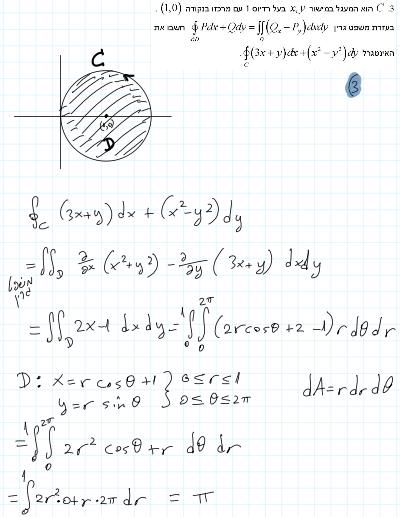 3. C הוא המעגל במישור x, y בעל רדיוס 1 עם מרכזו בנקודה (1,0).
בעזרת משפט גרין ∮_{∂D} Pdx+Qdy = ∬_D (Q_x − P_y)dxdy חשבו את
האינטגרל ∮_C (3x+y)dx+(x²−y²)dy.
3
C
(1,0)
D
∮_C (3x+y) dx + (x²−y²) dy
= ∬_D ∂/∂x (x²+y²) − ∂/∂y (3x+y) dxdy
משפט גרין
= ∬_D 2x−1 dxdy = ∫_0^1 ∫_0^{2π} (2rcosθ+2−1) r dθ dr
D: x = r cosθ +1 } 0≤r≤1 dA = r dr dθ
y = r sinθ } 0≤θ≤2π
= ∫_0^1 ∫_0^{2π} 2r² cosθ + r dθ dr
= ∫_0^1 2r²·0 + r·2π dr = π